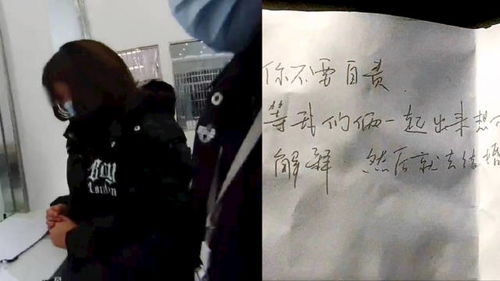 Boy
London
你不要自责
等我们俩一起出来想
解释 然后就去结婚